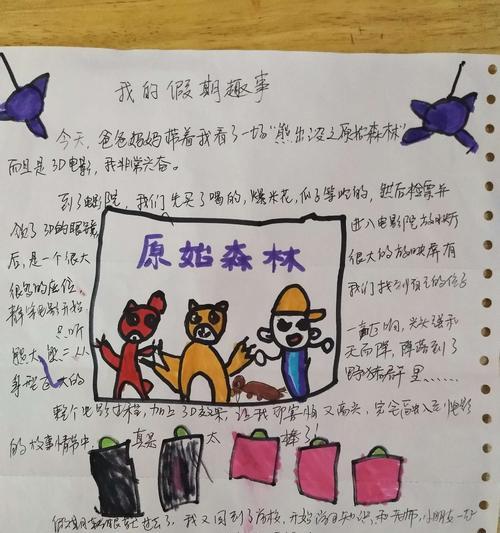 我的假期趣事
今天,爸爸妈妈带着我看了一场"熊出没之原始森林"
而且是3D电影,我非常兴奋。
到了电影院,我们先买了喝的,爆米花,瓜子等吃的,然后检票并
领了3D的眼镜 进入电影院放映厅
后,是一个很大 很大的放映屏有
很多的座位 我们找到自己的位子
静等电影开始
原始森林
只听 一轰响,光头强和
熊大熊二从 天而降,降落到了
野猪群里……
整个电影 加上3D效果,让我即害怕又高兴,完全融入到电影
的故事情节中,真是太棒了!
过去了,我又回到了学校,开始学习知识,和老师,小朋友一起